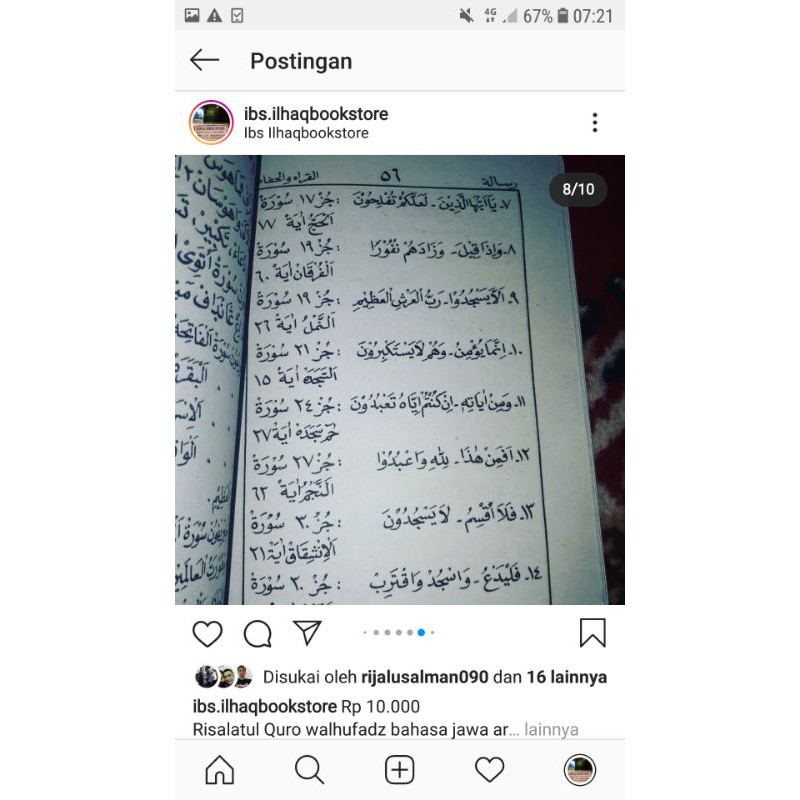 67% 07:21
4G
Postingan
ibs.ilhaqbookstore
Ibs Ilhaqbookstore
8/10
رسالة ٥٦ القراء والحفا
٧. يَاآيُّهَا الَّذِيْنَ - لَعَلَّكُمْ تُفْلِحُوْنَ : جُزْ ١٧ سُوْرَةْ
اَلْحَجّْ اٰيَةْ ٧٧
٨. وَاِذَا قِيْلَ - وَزَادَهُمْ نُفُوْرًا : جُزْ ١٩ سُوْرَةْ
اَلْفُرْقَانْ اٰيَةْ ٦٠
٩. اَلَّا يَسْجُدُوْا - رَبُّ الْعَرْشِ الْعَظِيْمِ : جُزْ ١٩ سُوْرَةْ
اَلنَّمْلُ اٰيَةْ ٢٦
١٠. اِنَّمَا يُؤْمِنُ - وَهُمْ لَا يَسْتَكْبِرُوْنَ : جُزْ ٢١ سُوْرَةْ
اَلسَّجْدَةْ اٰيَةْ ١٥
١١. وَمِنْ اٰيَاتِهِ - اِنْ كُنْتُمْ اِيَّاهُ تَعْبُدُوْنَ : جُزْ ٢٤ سُوْرَةْ
حٰمۤ سَجْدَةْ اٰيَةْ ٢٧
١٢. اَفَمِنْ هٰذَا - لِلّٰهِ وَاعْبُدُوْا : جُزْ ٢٧ سُوْرَةْ
اَلنَّجْمُ اٰيَةْ ٦٢
١٣. فَلَا اُقْسِمُ - لَا يَسْجُدُوْنَ : جُزْ ٣٠ سُوْرَةْ
اَلْاِنْشِقَاقْ اٰيَةْ ٢١
١٤. فَلْيَدْعُ - وَاسْجُدْ وَاقْتَرِبْ : جُزْ ٣٠ سُوْرَةْ
Disukai oleh rijalusalman090 dan 16 lainnya
ibs.ilhaqbookstore Rp 10.000
Risalatul Quro walhufadz bahasa jawa ar... lainnya